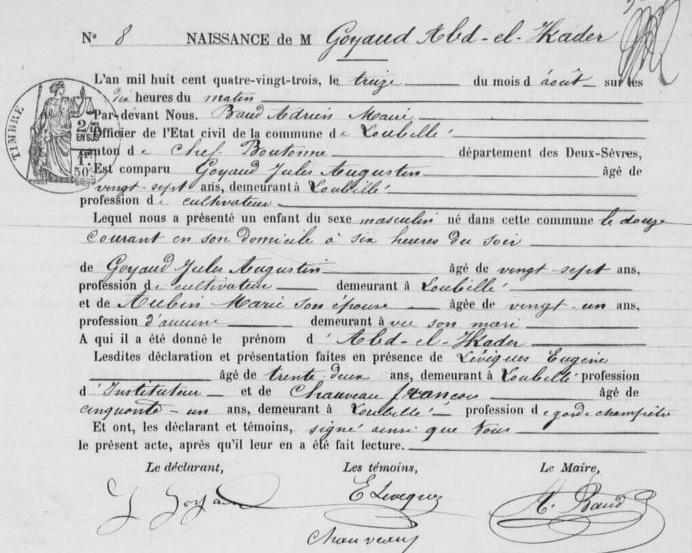 N° 8 NAISSANCE de M Goyaud Abd-el-Kader
L'an mil huit cent quatre-vingt-trois, le treize du mois d'août sur les
dix heures du matin
Par-devant Nous. Baud Adrien Marie
Officier de l'Etat civil de la commune de Loubillé
canton de Chef Boutonne département des Deux-Sèvres,
Est comparu Goyaud Jules Augustin âgé de
vingt-sept ans, demeurant à Loubillé
profession de cultivateur
Lequel nous a présenté un enfant du sexe masculin né dans cette commune le douze
courant en son domicile à six heures du soir
de Goyaud Jules Augustin âgé de vingt-sept ans,
profession de cultivateur demeurant à Loubillé
et de Aubin Marie son épouse âgée de vingt-un ans,
profession d'aucune demeurant avec son mari
A qui il a été donné le prénom d'Abd-el-Kader
Lesdites déclaration et présentation faites en présence de Lévêques Eugène
âgé de trente-deux ans, demeurant à Loubillé profession
d'Instituteur et de Chauveau françois âgé de
cinquante-un ans, demeurant à Loubillé profession de garde champêtre
Et ont, les déclarant et témoins, signé ainsi que Nous
le présent acte, après qu'il leur en a été fait lecture.
Le déclarant, Les témoins, Le Maire,
J Goyaud E Leveques A. Baud
Chauveau
TIMBRE
2/10
EN SUS
1F
50C